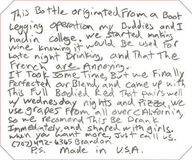 This Bottle originated From a Boot
Legging operation my Buddies and I
had in college. We started making
wine knowing it would be used for
Late night Drinking, and That The
French are Annoying.
It Took Some Time, But we Finally
Perfected our Blend, and came up with
This Full Bodied Red That pairs well
w/ wednesday nights and Pizza, we
use grapes From all over California,
So we recomend This Be Drank
Immediately, and Shared with girls.
when you want more, Just call us
(707) 492-6365 Brandon.
P.S. Made in USA.